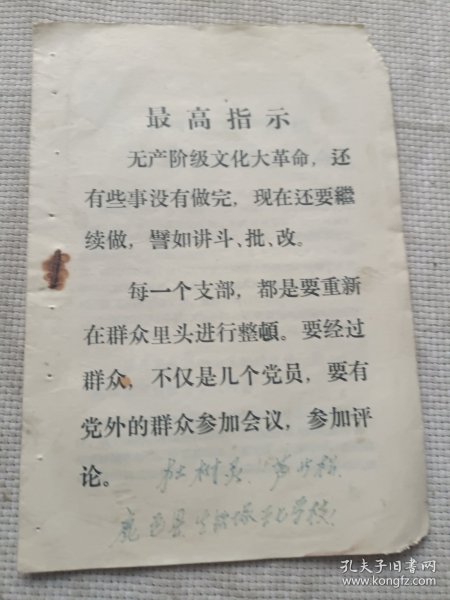 最高指示
无产阶级文化大革命，还
有些事没有做完，现在还要繼
续做，譬如讲斗、批、改。
每一个支部，都是要重新
在群众里头进行整頓。要经过
群众，不仅是几个党员，要有
党外的群众参加会议，参加评
论。
杜树
鹿邑县 学校
孔夫子旧书网
www.kongfz.com